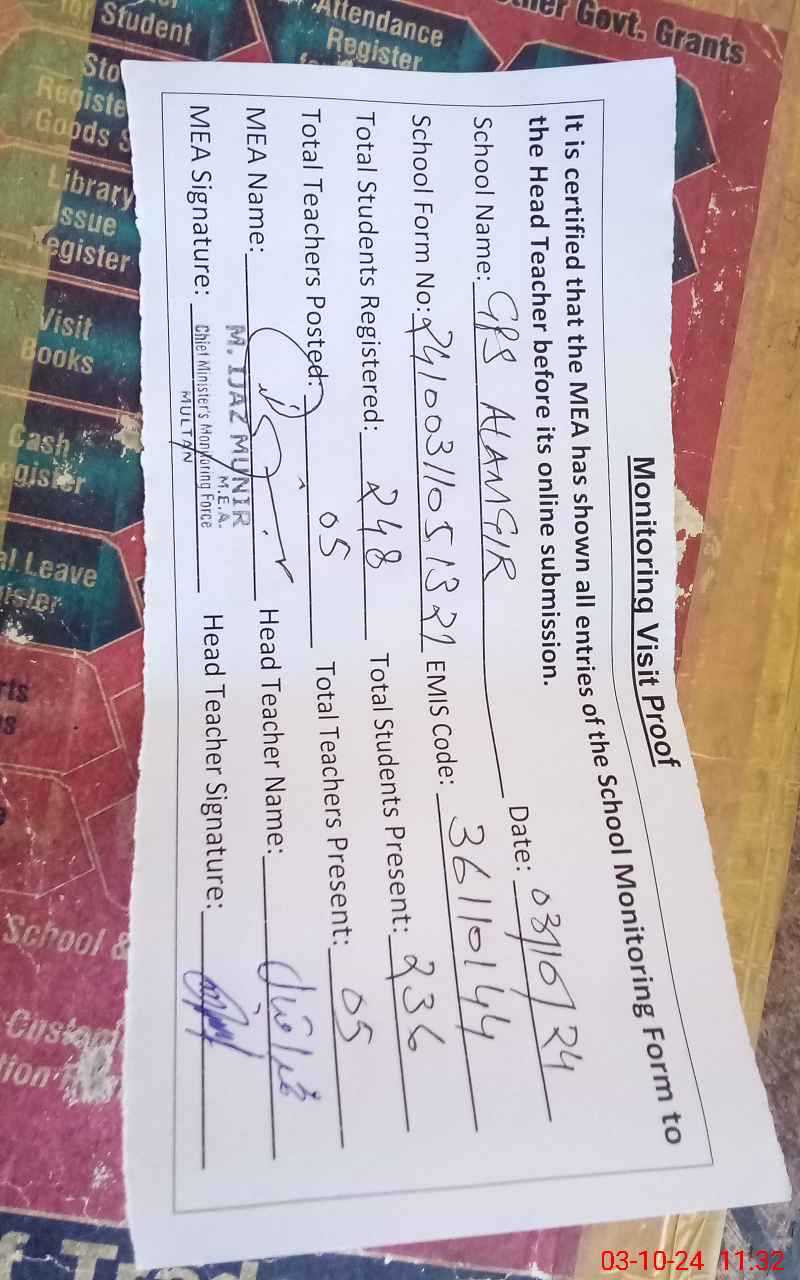 Monitoring Visit Proof
It is certified that the MEA has shown all entries of the School Monitoring Form to
the Head Teacher before its online submission.
Date: 03/10/24
School Name: GPS ALAMGIR
School Form No: 24100311051321 EMIS Code: 36110144
Total Students Registered: 248 Total Students Present: 236
Total Teachers Posted: 05 Total Teachers Present: 05
MEA Name: Head Teacher Name:
M. IJAZ MUNIR
M.E.A.
Chief Minister's Monitoring Force
MULTAN
MEA Signature: Head Teacher Signature:
Student
Attendance
Register
Govt. Grants
Goods
Library
Issue
Register
Visit
Books
Cash
Leave
School &
03-10-24 11:32